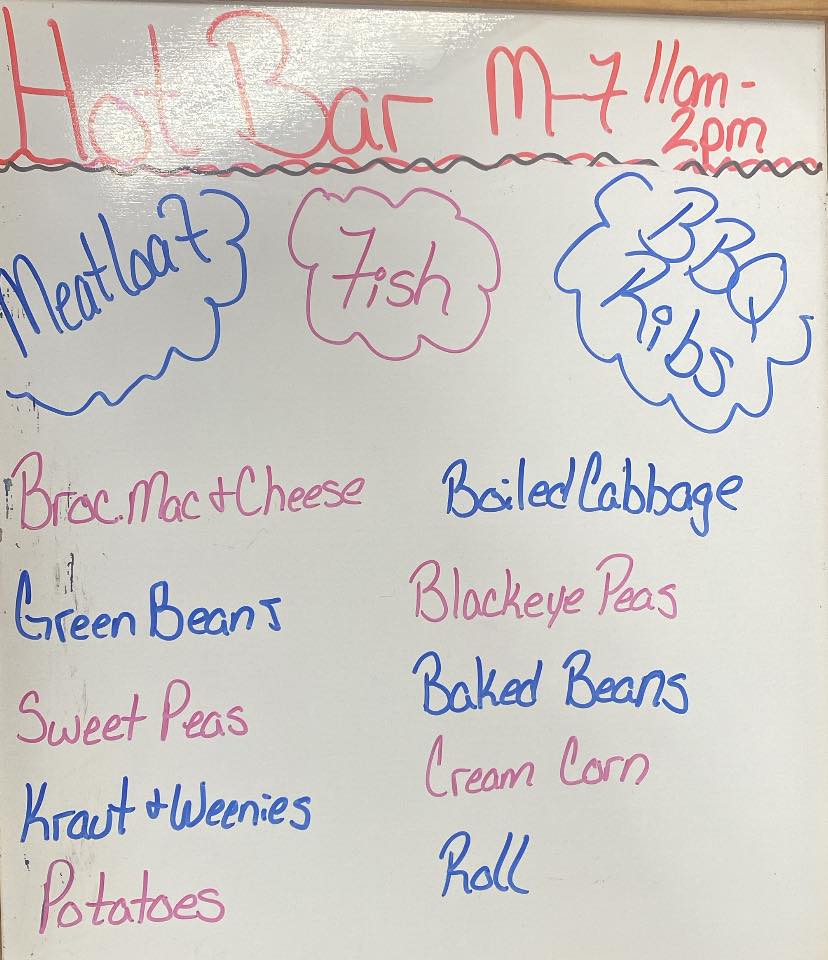 Hot Bar M-F 11am-
2pm
Meatloaf
Fish
BBQ
Ribs
Broc. Mac + Cheese
Green Beans
Sweet Peas
Kraut + Weenies
Potatoes
Boiled Cabbage
Blackeye Peas
Baked Beans
Cream Corn
Roll